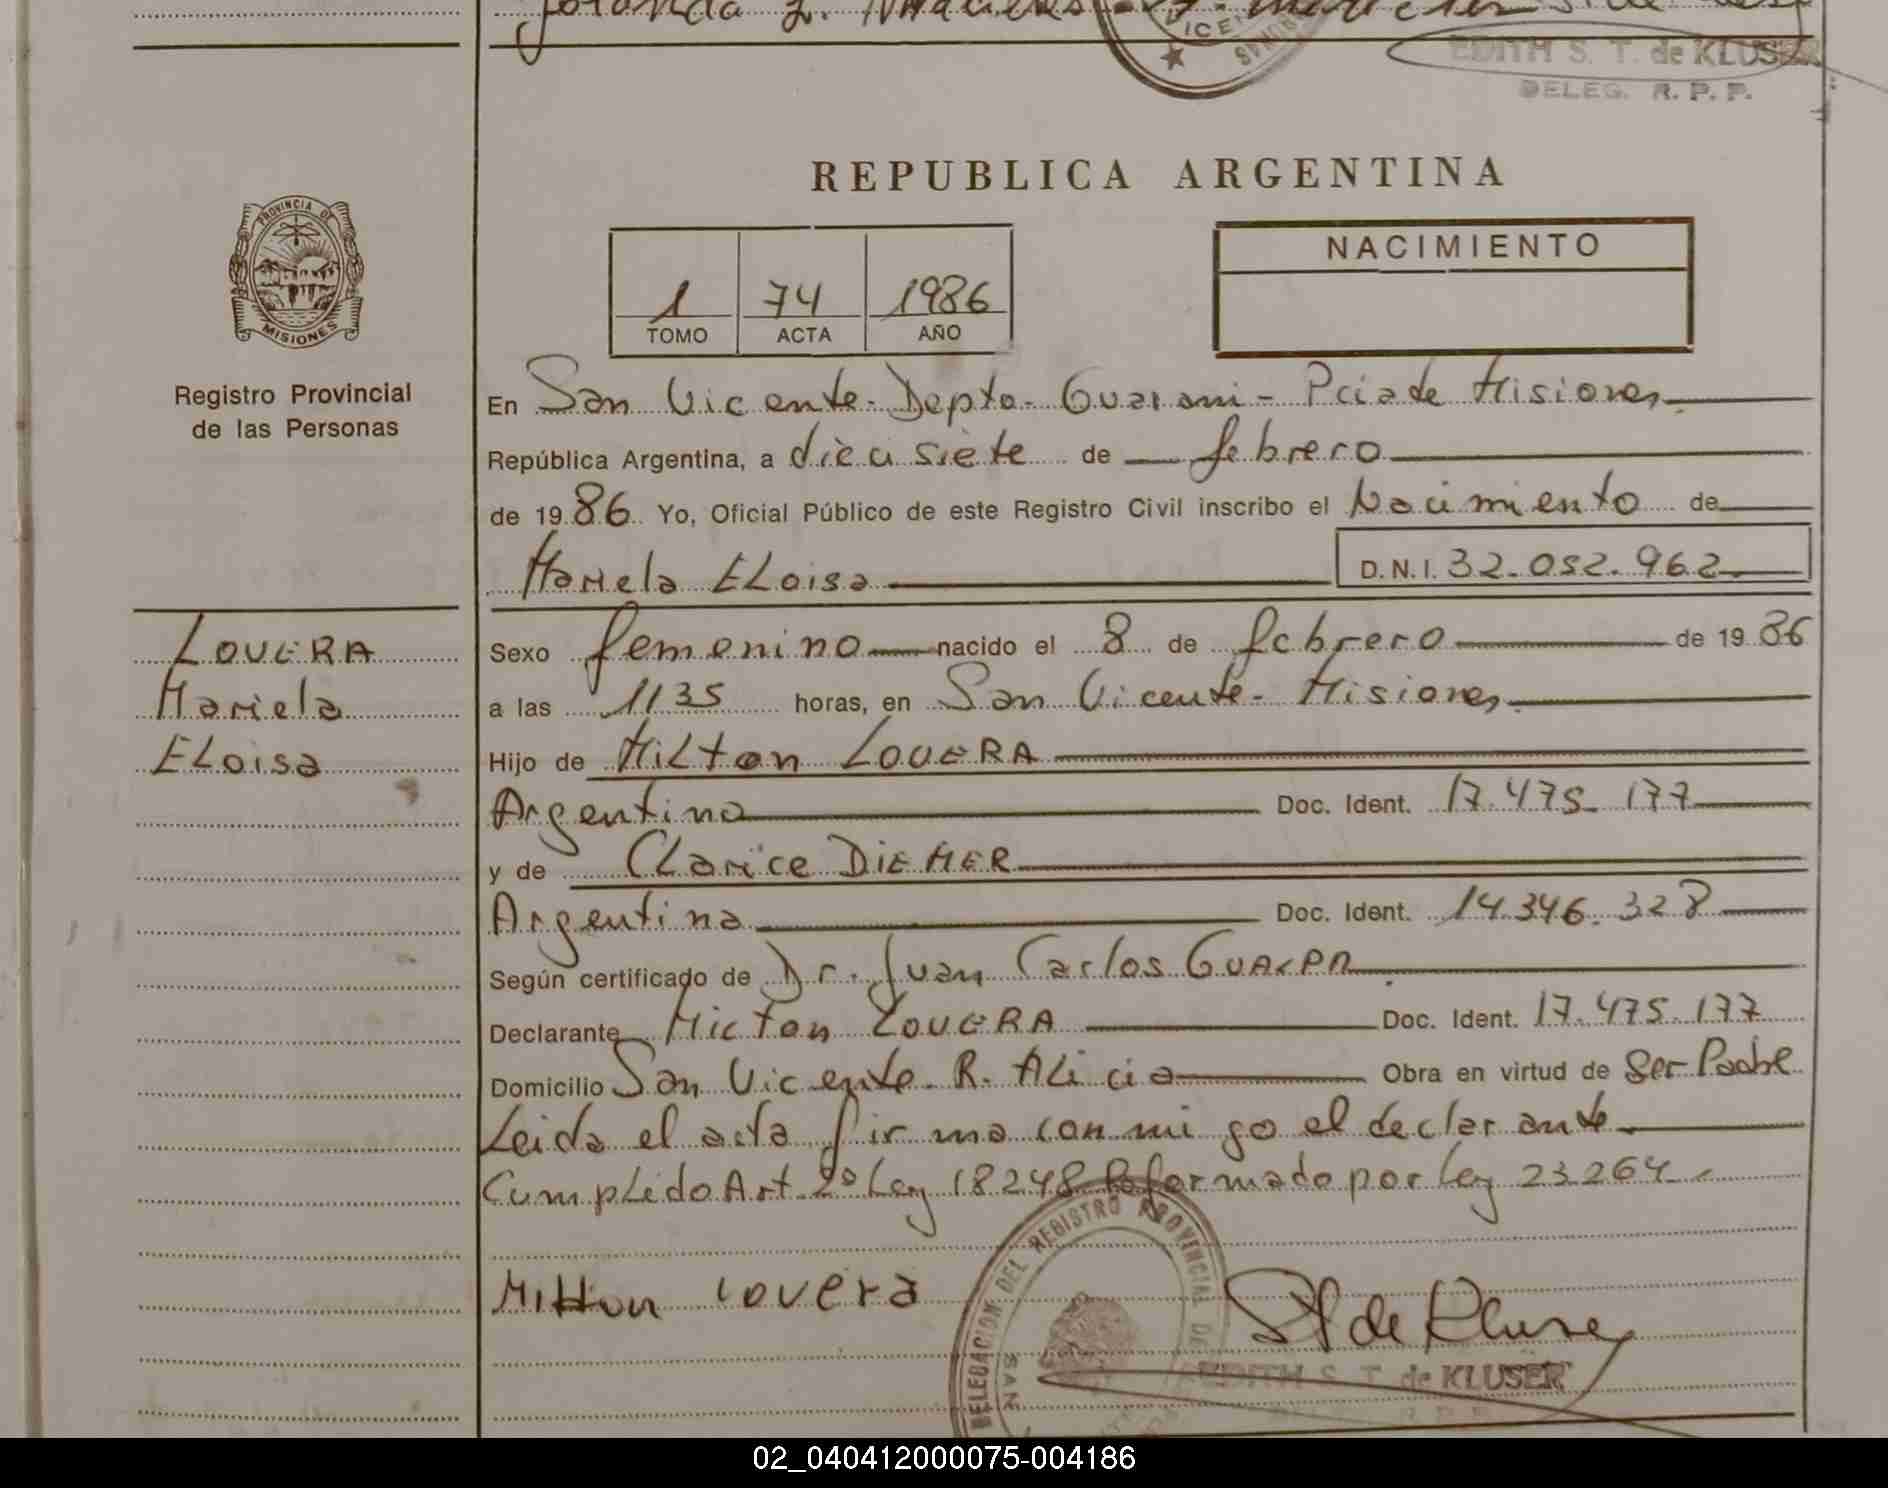 EDITH S. T. de KLUSER
DELEG. R. P. P.
REPUBLICA ARGENTINA
PROVINCIA DE
MISIONES
1 74 1986
TOMO ACTA AÑO
NACIMIENTO
Registro Provincial
de las Personas
En San Vicente - Depto - Guarani - Pcia de Misiones
República Argentina, a dieci siete de febrero
de 1986 Yo, Oficial Público de este Registro Civil inscribo el Nacimiento de
Mariela ELoisa D.N.I. 32.052.962
LOVERA
Mariela
ELoisa
Sexo femenino nacido el 8 de febrero de 1986
a las 1135 horas, en San Vicente - Misiones
Hijo de MiLton LOVERA
Argentino Doc. Ident. 17.475.177
y de CLarice DIEMER
Argentina Doc. Ident. 14.346.328
Según certificado de Dr. Juan Carlos
Declarante MiLton LOVERA Doc. Ident. 17.475.177
Domicilio San Vicente R. ALicia Obra en virtud de Ser Padre
Leida el acta firma conmigo el declarante
CumpLido Art. 2º Ley 18248 Reformado por Ley 23264
DELEGACION DEL REGISTRO PROVINCIAL DE
SAN
Milton Lovera
EDITH S. T. de KLUSER
02_040412000075-004186